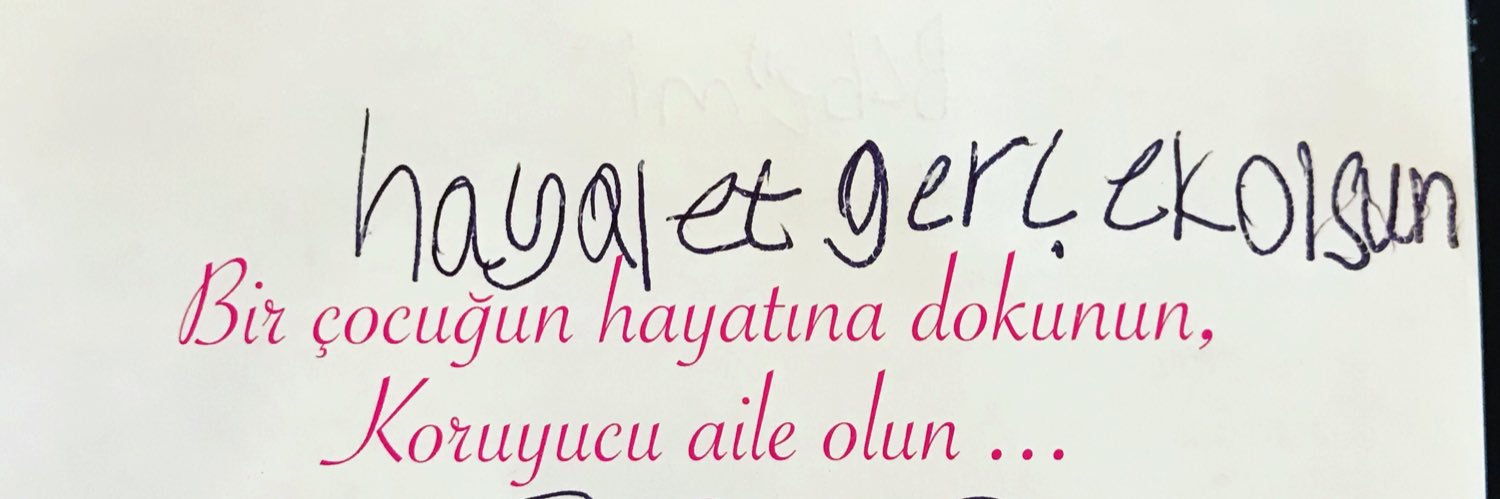 hayal et gerçek olsun
Bir çocuğun hayatına dokunun,
Koruyucu aile olun ...